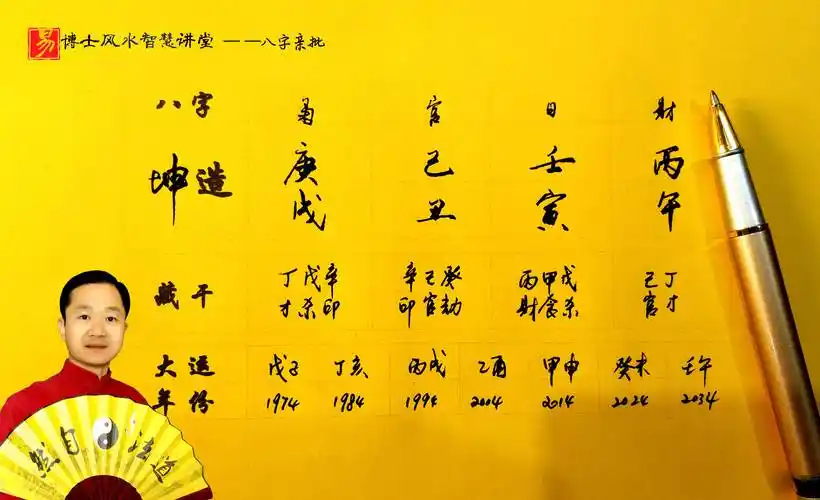 易 博士风水智慧讲堂 ——八字亲批
八字 枭 官 日 财
坤造 庚 己 壬 丙
戌 丑 寅 午
藏干 丁戊辛 辛己癸 丙甲戊 己丁
才杀印 印官劫 财食杀 官才
大运 戊子 丁亥 丙戌 乙酉 甲申 癸未 壬午
年份 1974 1984 1994 2004 2014 2024 2034
然自法道